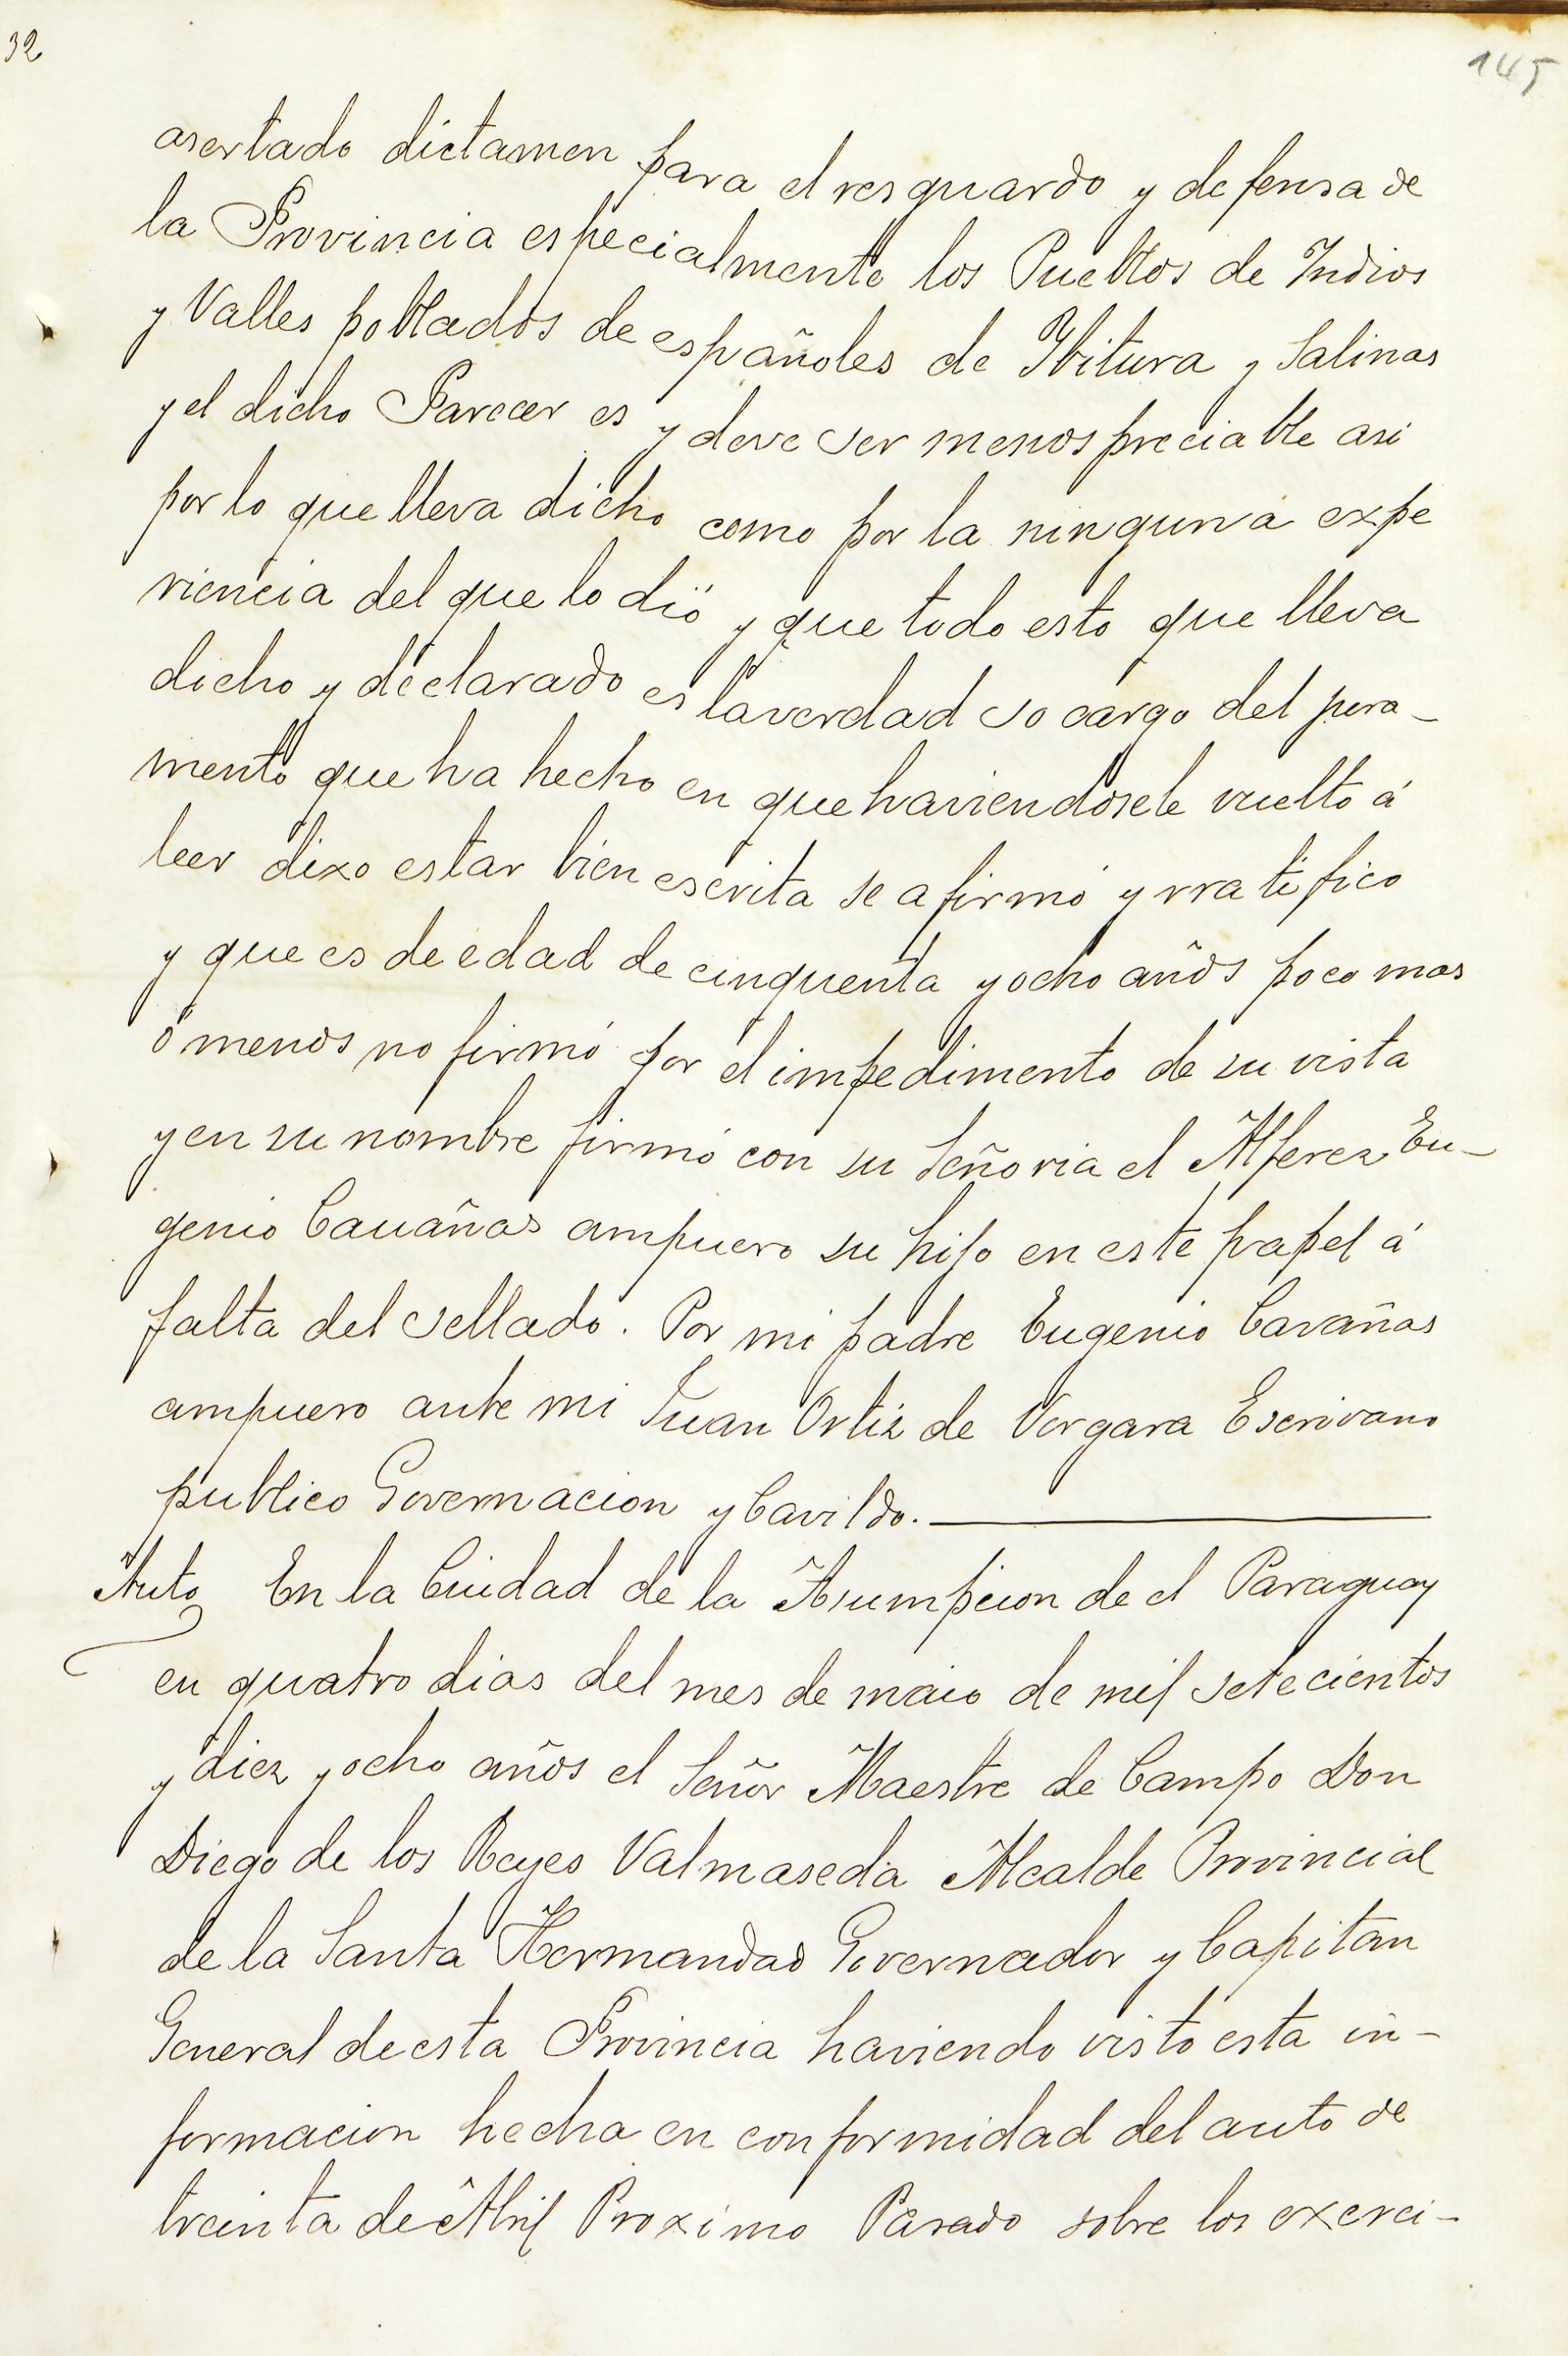 32
145
asertado dictamen para el resguardo y defensa de
la Provincia especialmente los Pueblos de Indios
y Valles poblados de españoles de Ybitura y Salinas
y el dicho Parecer es y deve ser menospreciable asi
por lo que lleva dicho como por la ninguna expe
riencia del que lo dió y que todo esto que lleva
dicho y declarado es la verdad so cargo del jura-
mento que ha hecho en que haviendosele vuelto á
leer dixo estar bien escrita se afirmó y rratifico
y que es de edad de cinquenta y ocho años poco mas
ó menos no firmó por el impedimento de su vista
y en su nombre firmó con su Señoria el Alferez Eu-
genio Cauañas ampuero su hijo en este papel á
falta del sellado. Por mi padre Eugenio Cavañas
ampuero ante mi Juan Ortiz de Vergara Escrivano
publico Governacion y Cavildo.
Auto En la Ciudad de la Asumpcion de el Paraguay
en quatro dias del mes de maio de mil setecientos
y diez y ocho años el Señor Maestre de Campo Don
Diego de los Reyes Valmaseda Alcalde Provincial
de la Santa Hermandad Governador y Capitan
General de esta Provincia haviendo visto esta in-
formacion hecha en conformidad del auto de
treinta de Abril Proximo Pasado sobre los exerci-